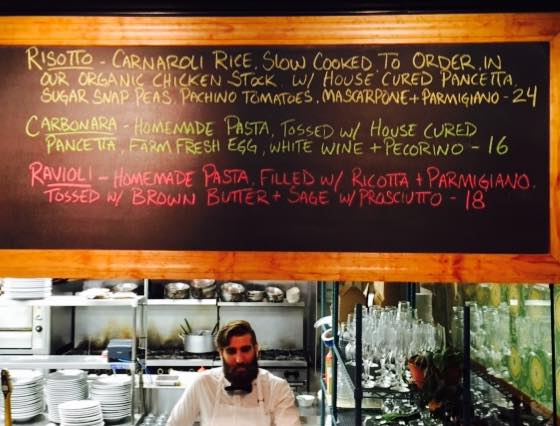 RISOTTO - CARNAROLI RICE, SLOW COOKED TO ORDER, IN
OUR ORGANIC CHICKEN STOCK W/ HOUSE CURED PANCETTA,
SUGAR SNAP PEAS, PACHINO TOMATOES, MASCARPONE + PARMIGIANO - 24
CARBONARA - HOMEMADE PASTA, TOSSED W/ HOUSE CURED
PANCETTA, FARM FRESH EGG, WHITE WINE + PECORINO - 16
RAVIOLI - HOMEMADE PASTA, FILLED W/ RICOTTA + PARMIGIANO,
TOSSED W/ BROWN BUTTER + SAGE W/ PROSCIUTTO - 18